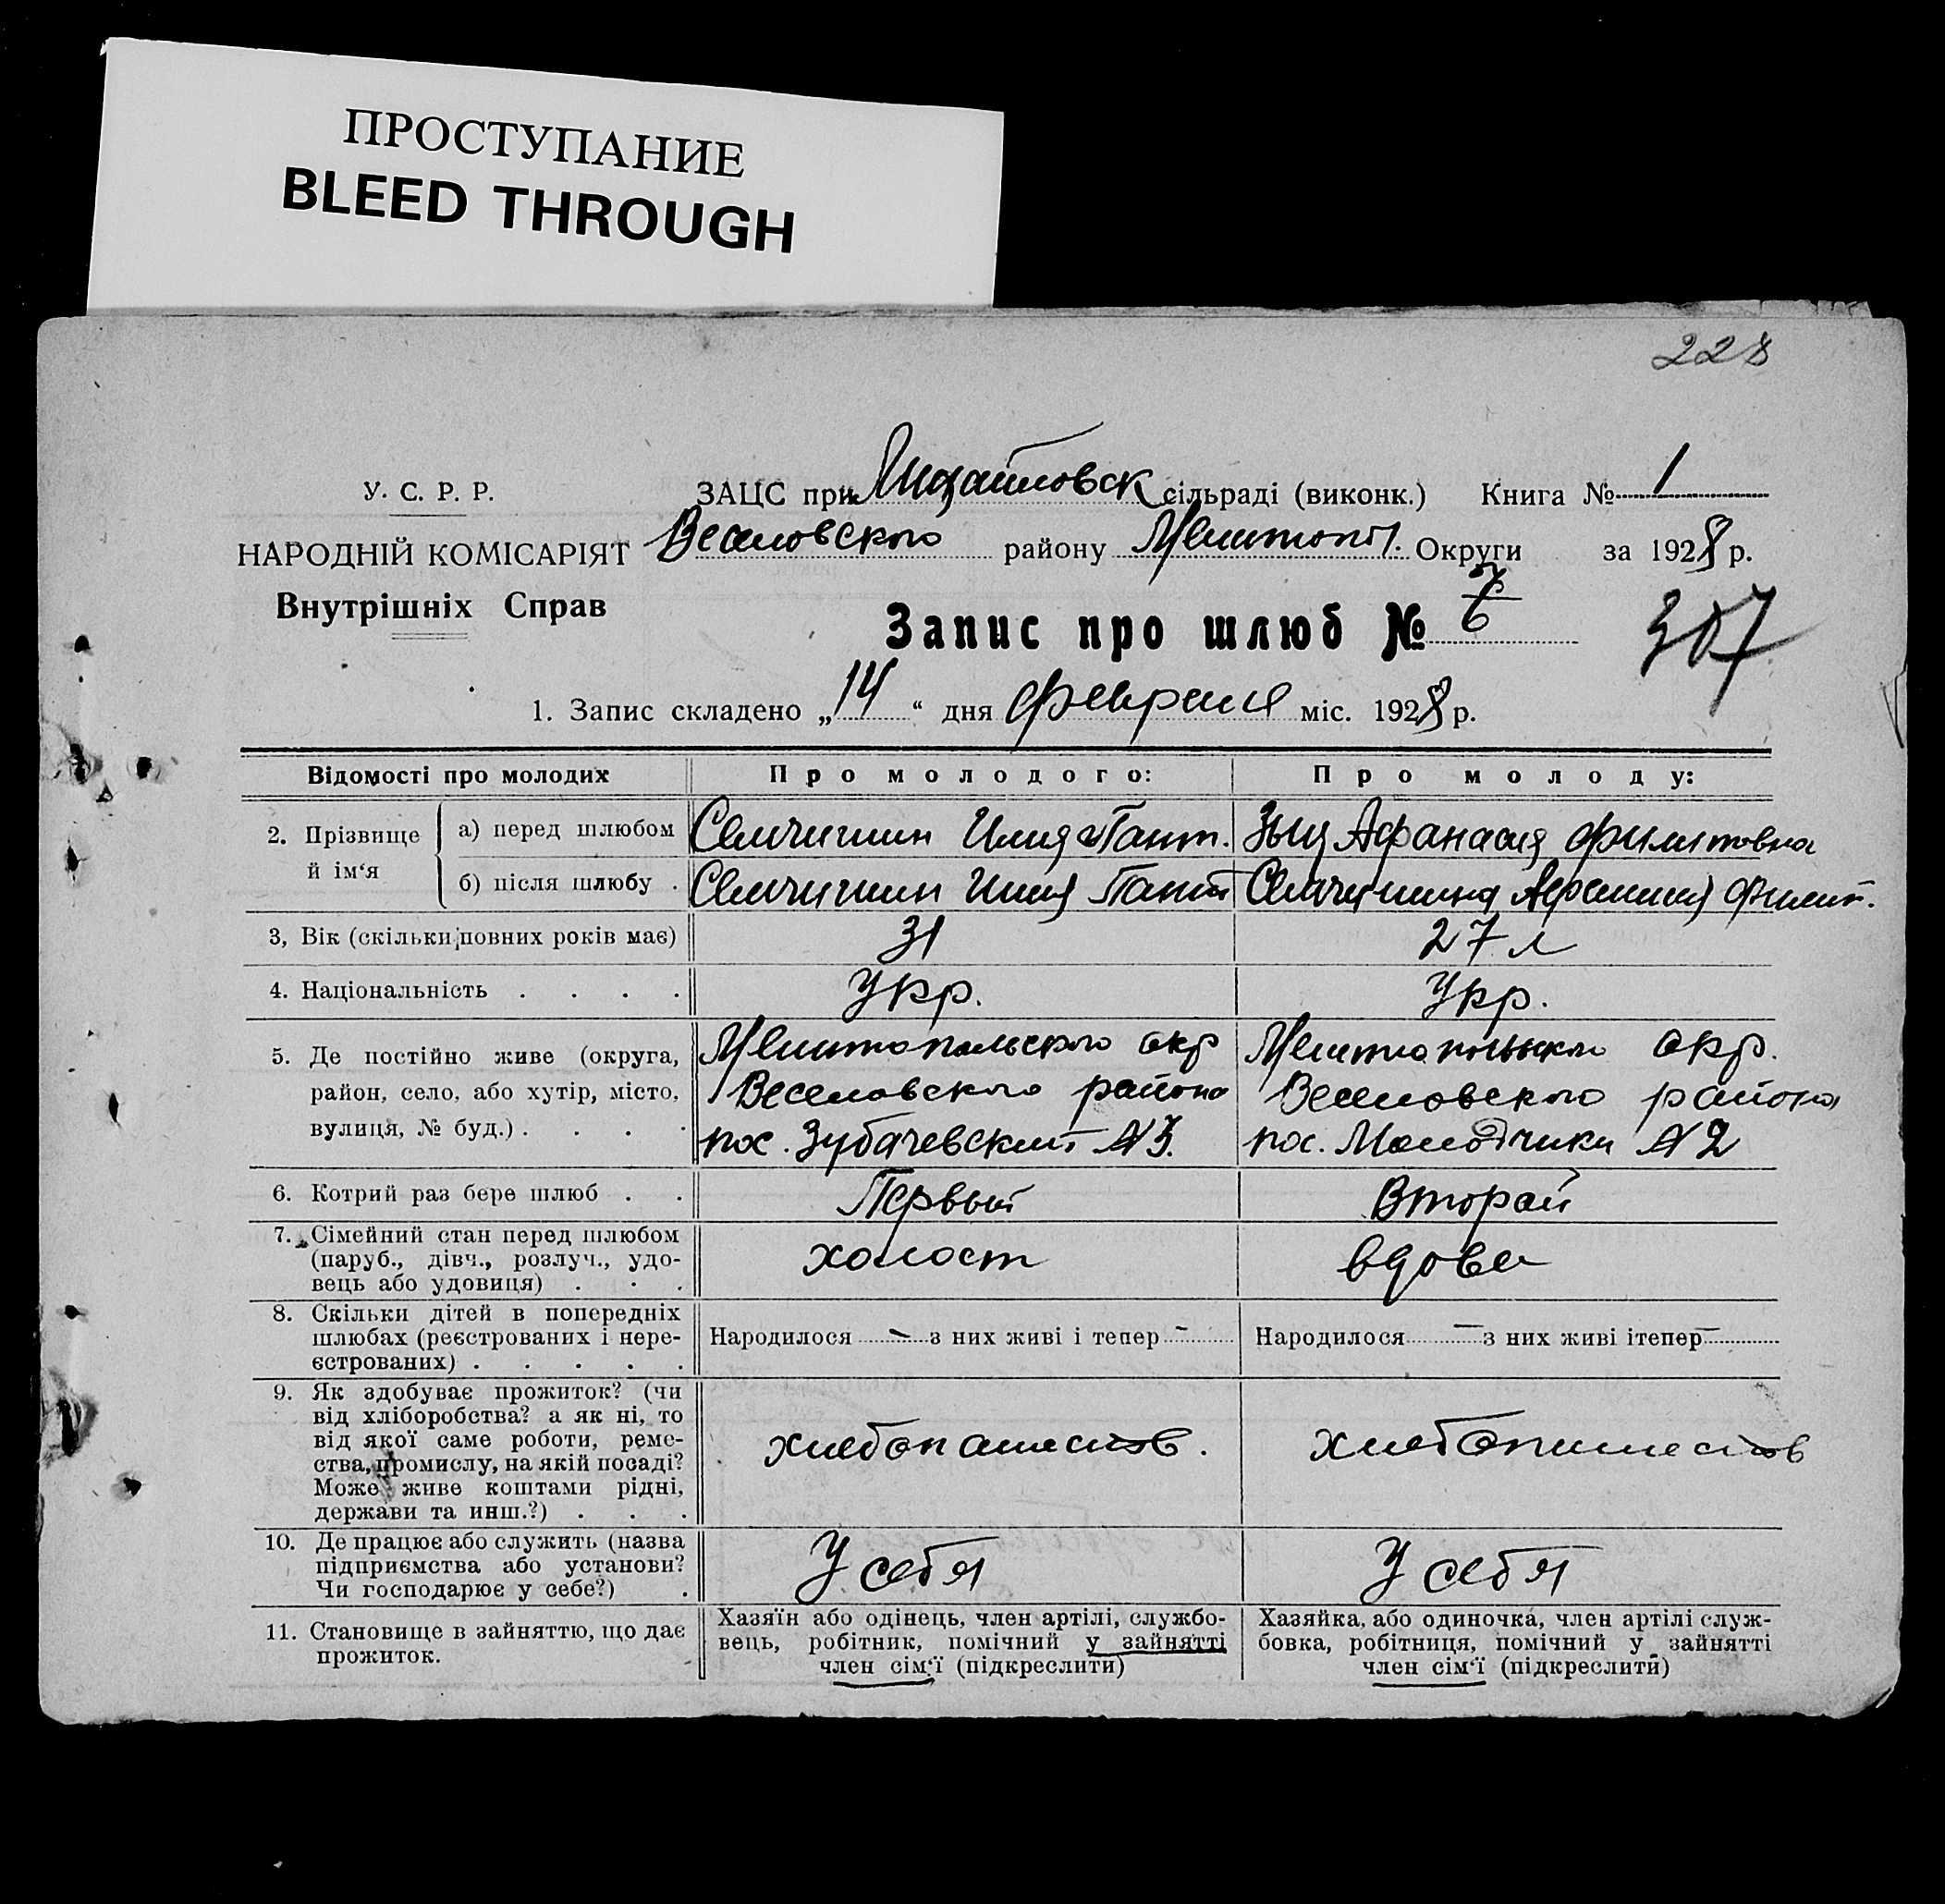 ПРОСТУПАНИЕ
BLEED THROUGH
228
У. С. Р. Р.
НАРОДНІЙ КОМІСАРІЯТ
Внутрішніх Справ
ЗАЦС при сільраді (виконк.) Книга № 1
Веселовского району Мелитопол. Округи за 1928 р.
Запис про шлюб № 6
307
1. Запис складено „14“ дня февраля міс. 1928 р.
Відомості про молодих Про молодого: Про молоду:
2. Прізвище й ім‘я
а) перед шлюбом Семчишин Илия Пант. Зыц Афанасия Филиповна
б) після шлюбу . Семчишин Илия Пант Семчишина Афанасия Филип.
3, Вік (скільки повних років має) 31 27 л
4. Національність . . . . Укр. Укр.
5. Де постійно живе (округа,
район, село, або хутір, місто,
вулиця, № буд.) . . . .
Мелитопольского окр
Веселовского района
пос. Зубачевский № 3.
Мелитопольского окр.
Веселовского района
пос. Молодчики № 2
6. Котрий раз бере шлюб . . Первый Вторай
7. Сімейний стан перед шлюбом
(паруб., дівч., розлуч., удо-
вець або удовиця) . . .
холост вдова
8. Скільки дітей в попередніх
шлюбах (реєстрованих і нере-
єстрованих) . . . . .
Народилося — з них живі і тепер - Народилося — з них живі ітепер —
9. Як здобуває прожиток? (чи
від хліборобства? а як ні, то
від якої саме роботи, реме-
ства, промислу, на якій посаді?
Може живе коштами рідні,
держави та инш.?) . . .
хлебопашеств. хлебопашеств
10. Де працює або служить (назва
підприємства або установи?
Чи господарює у себе?) .
У себя У себя
11. Становище в зайняттю, що дає
прожиток.
Хазяїн або одінець, член артілі, службо-
вець, робітник, помічний у зайнятті
член сім‘ї (підкреслити)
Хазяйка, або одиночка, член артілі служ-
бовка, робітниця, помічний у зайнятті
член сім‘ї (підкреслити)